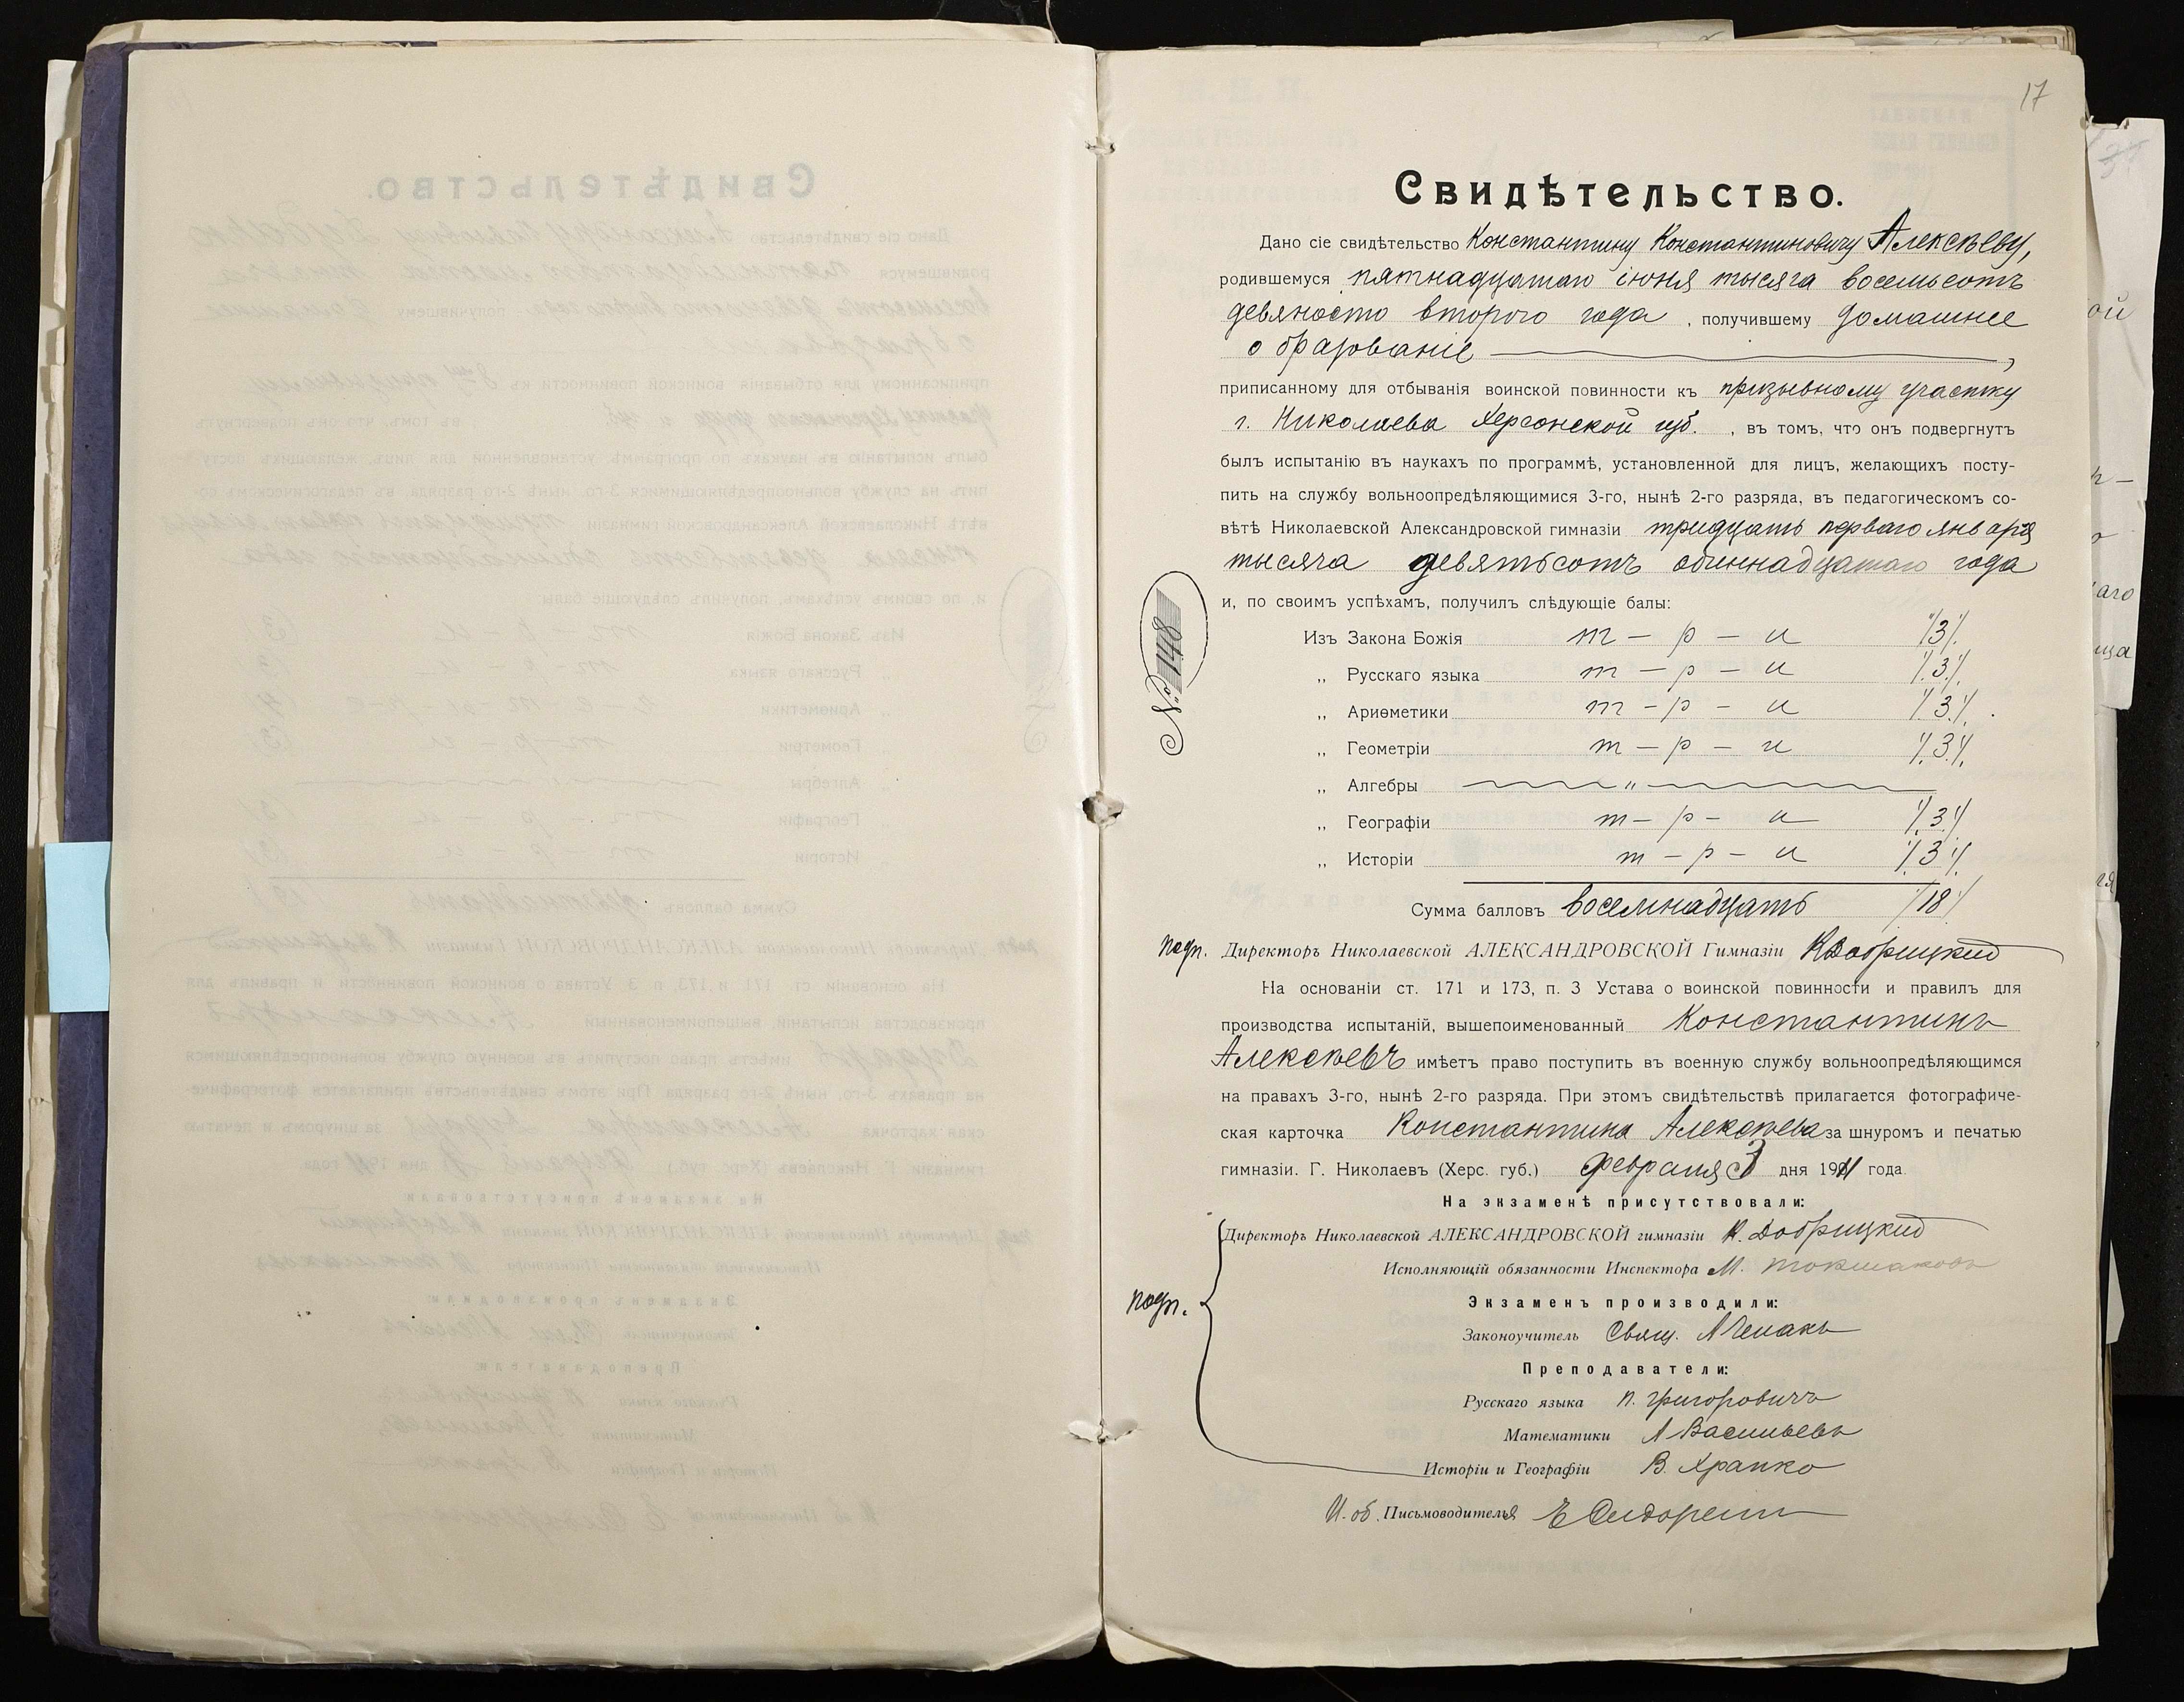 17
Свидѣтельство.
Дано сіе свидѣтельство Константину Константиновичу Алексѣеву,
родившемуся пятнадцатаго іюня тысяча восемьсотъ
девяносто второго года, получившему домашнее
образованіе,
приписанному для отбыванія воинской повинности къ призывному участку
г. Николаева Херсонской губ., въ томъ, что онъ подвергнутъ
былъ испытанію въ наукахъ по программѣ, установленной для лицъ, желающихъ посту-
пить на службу вольноопредѣляющимися 3-го, нынѣ 2-го разряда, въ педагогическомъ со-
вѣтѣ Николаевской Александровской гимназіи тридцать перваго января
тысяча девятьсотъ одиннадцатаго года
и, по своимъ успѣхамъ, получилъ слѣдующіе балы:
№ 148
Изъ Закона Божія т - р - и /3/.
„ Русскаго языка т - р - и /3/.
„ Ариѳметики т - р - и /3/.
„ Геометріи т - р - и /3/.
„ Алгебры „
„ Географіи т - р - и /3/
„ Исторіи т - р - и /3/
Сумма балловъ восемнадцать /18/
Подп. Директоръ Николаевской АЛЕКСАНДРОВСКОЙ Гимназіи К Добрицкій
На основаніи ст. 171 и 173, п. 3 Устава о воинской повинности и правилъ для
производства испытаній, вышепоименованный Константинъ
Алексѣевъ имѣетъ право поступить въ военную службу вольноопредѣляющимся
на правахъ 3-го, нынѣ 2-го разряда. При этомъ свидѣтельствѣ прилагается фотографиче-
ская карточка Константина Алексѣева за шнуромъ и печатью
гимназіи. Г. Николаевъ (Херс. губ.) февраля 3 дня 1911 года.
На экзаменѣ присутствовали:
Директоръ Николаевской АЛЕКСАНДРОВСКОЙ гимназіи К. Добрицкій
Исполняющій обязанности Инспектора М. Токмаковъ
Подп.
Экзаменъ производили:
Законоучитель Свящ. Л Чемакъ
Преподаватели:
Русскаго языка П. Григоровичъ
Математики Л Васильевъ
Исторіи и Географіи В. Храпко
И. об. Письмоводителя Е